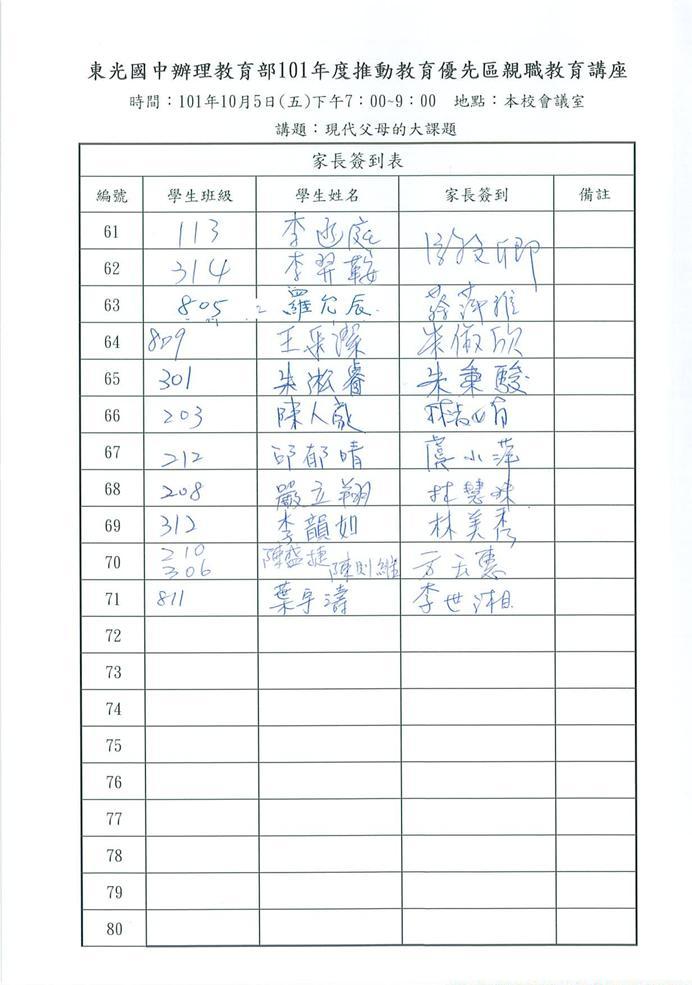 東光國中辦理教育部101年度推動教育優先區親職教育講座
時間：101年10月5日(五)下午7：00~9：00 地點：本校會議室
講題：現代父母的大課題
家長簽到表
編號 學生班級 學生姓名 家長簽到 備註
61 113 李 庭
62 314 李羿鞍
63 805 羅允辰
64 809 王 潔 朱 欣
65 301 朱淞睿 朱秉駿
66 203 陳人 林
67 212 邱郁晴 虞小萍
68 208 嚴立翔 林慧
69 312 李韻如 林美秀
70 210 306 陳盛捷 陳則維 方 惠
71 811 葉宇濤 李世湘
72
73
74
75
76
77
78
79
80